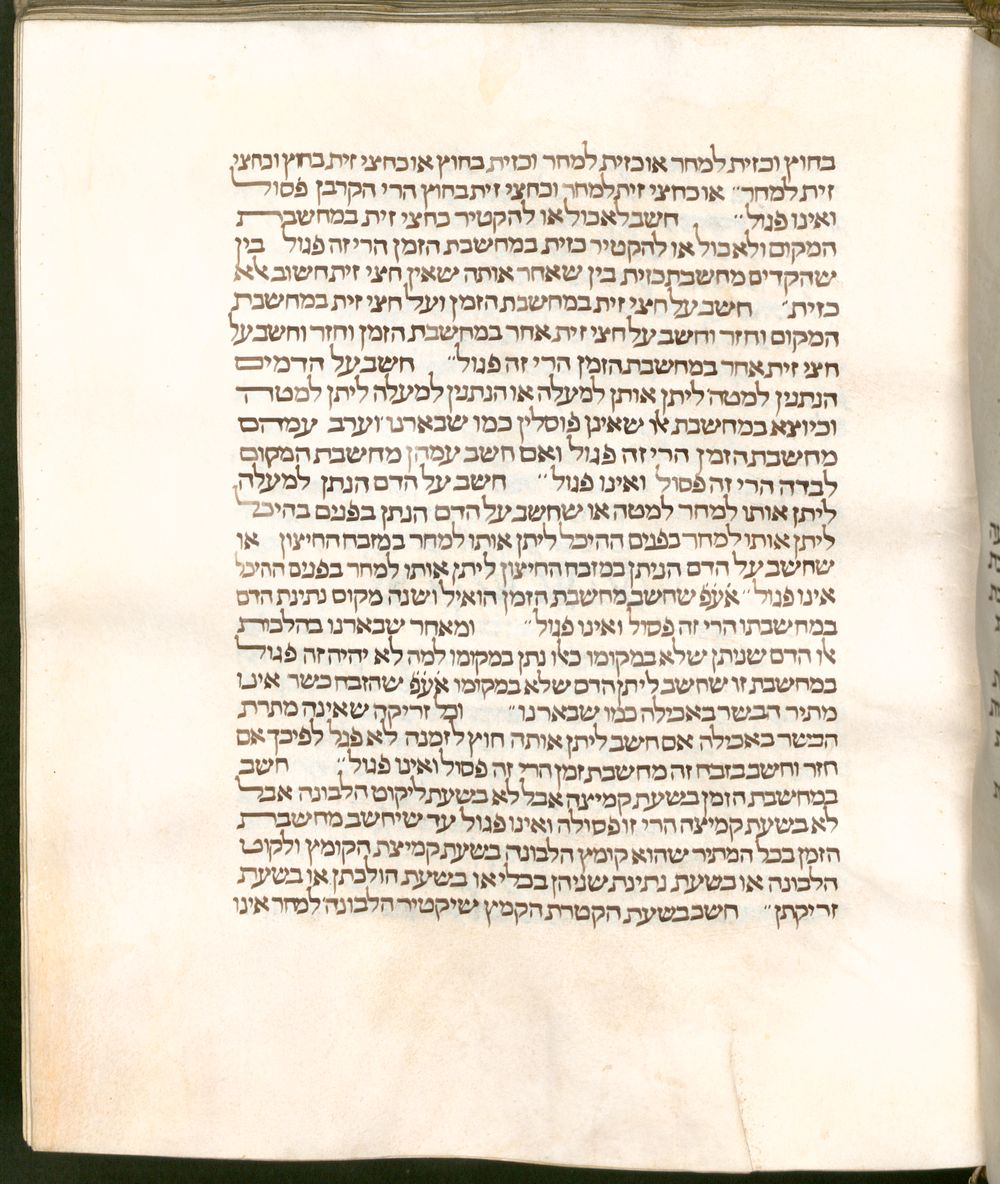 בחוץ וכזית למחר או כזית למחר וכזית בחוץ או כחצי זית בחוץ וכחצי
זית למחר״ או כחצי זית למחר וכחצי זית בחוץ הרי הקרבן פסול
ואינו פגול״ חשב לאכול או להקטיר כחצי זית במחשבת
המקום ולאכול או להקטיר כזית במחשבת הזמן הרי זה פגול בין
שהקדים מחשבת כזית בין שאחר אותה שאין חצי זית חשוב אצא
כזית״ חשב על חצי זית במחשבת הזמן ועל חצי זית במחשבת
המקום וחזר וחשב על חצי זית אחר במחשבת הזמן וחזר וחשב על
חצי זית אחר במחשבת הזמן הרי זה פגול״ חשב על הדמים
הנתנין למטה ליתן אותן למעלה או הנתנין למעלה ליתן למטה
וכיוצא במחשבת אלו שאינן פוסלין כמו שבארנו וערב עמהם
מחשבת הזמן הרי זה פגול ואם חשב עמהן מחשבת המקום
לבדה הרי זה פסול ואינו פגול״ חשב על הדם הנתן למעלה
ליתן אותו למחר למטה או שחשב על הדם הנתן בפנים בהיכל
ליתן אותו למחר בפנים ההיכל ליתן אותו למחר במזבח החיצון או
שחשב על הדם הניתן במזבח החיצון ליתן אותו למחר בפנים ההיכל
אינו פגול״ אע֗פ֗ שחשב במחשבת הזמן הואיל ושנה מקום נתינת הדם
במחשבתו הרי זה פסול ואינו פגול״ ומאחר שבארנו בהלכות
אלו הדם שניתן שלא במקומו כאלו נתן במקומו למה לא יהיה זה פגול
במחשבת זו שחשב ליתן הדם שלא במקומו אע֗פ֗ שהזבח כשר אינו
מתיר הבשר באכילה כמו שבארנו״ וכל זריקה שאינה מתרת
הבשר באכילה אם חשב ליתן אותה חוץ לזמנה לא פגל לפיכך אם
חזר וחשב בזבח זה מחשבת זמן הרי זה פסול ואינו פגול״ חשב
במחשבת הזמן בשעת קמיצה אבל לא בשעת ליקוט הלבונה אבל
לא בשעת קמיצה הרי זו פסולה ואינו פגול עד שיחשב מחשבת
הזמן בכל המתיר שהוא קומץ הלבונה בשעת קמיצת הקומץ ולקוט
הלבונה או בשעת נתינת שניהן בכלי או בשעת הולכתן או בשעת
זריקתן״ חשב בשעת הקטרת הקמץ שיקטיר הלבונה למחר אינו